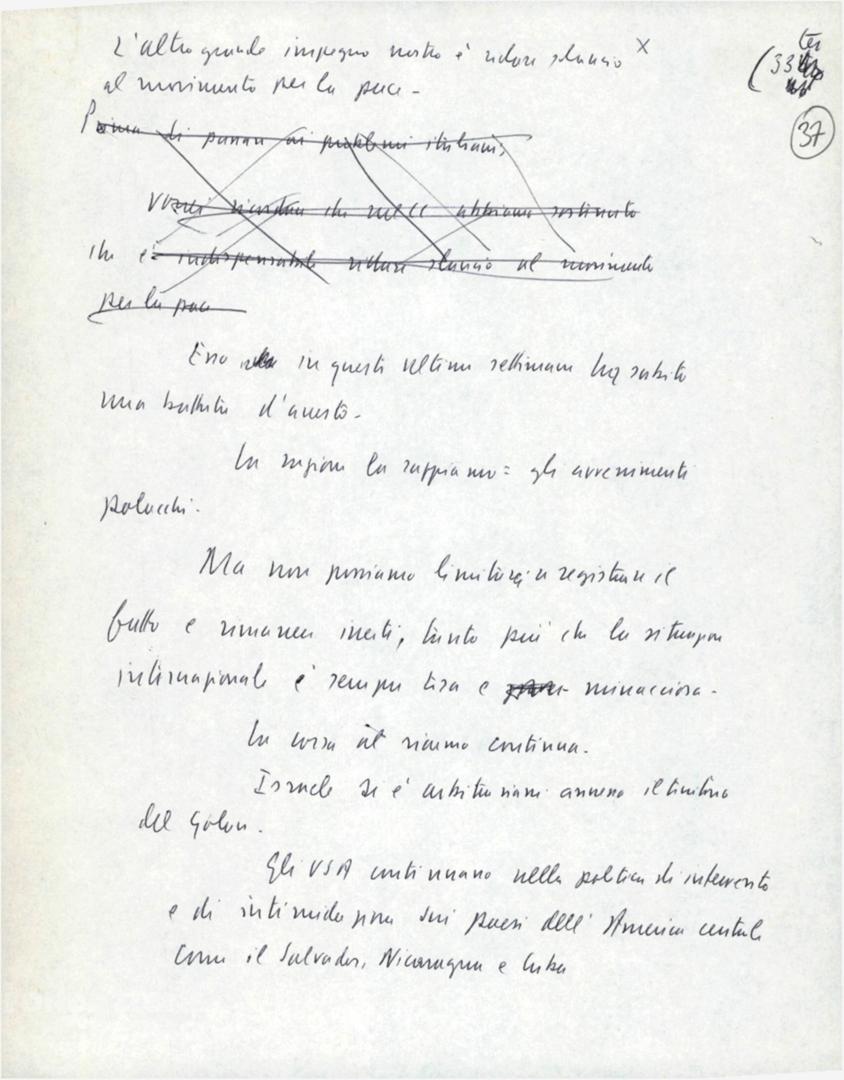 L'altro grande impegno nostro è ridare slancio x
al movimento per la pace -
(33 ter
37
Prima di passare ai problemi italiani,
vorrei ricordare che nel CC abbiamo sostenuto
che è indispensabile ridare slancio al movimento
per la pace
Esso in questi ultime settimane ha subito
una battuta d'arresto -
La ragione la sappiamo: gli avvenimenti
polacchi.
Ma non possiamo limitarci a registrare il
fatto e rimanere inerti, tanto più che la situazione
internazionale è sempre tesa e minacciosa -
La corsa al riarmo continua.
Israele si è arbitrariam annesso il territorio
del Golan.
Gli USA continuano nella politica di intervento
e di intimidazione sui paesi dell'America centrale
come il Salvador, Nicaragua e Cuba